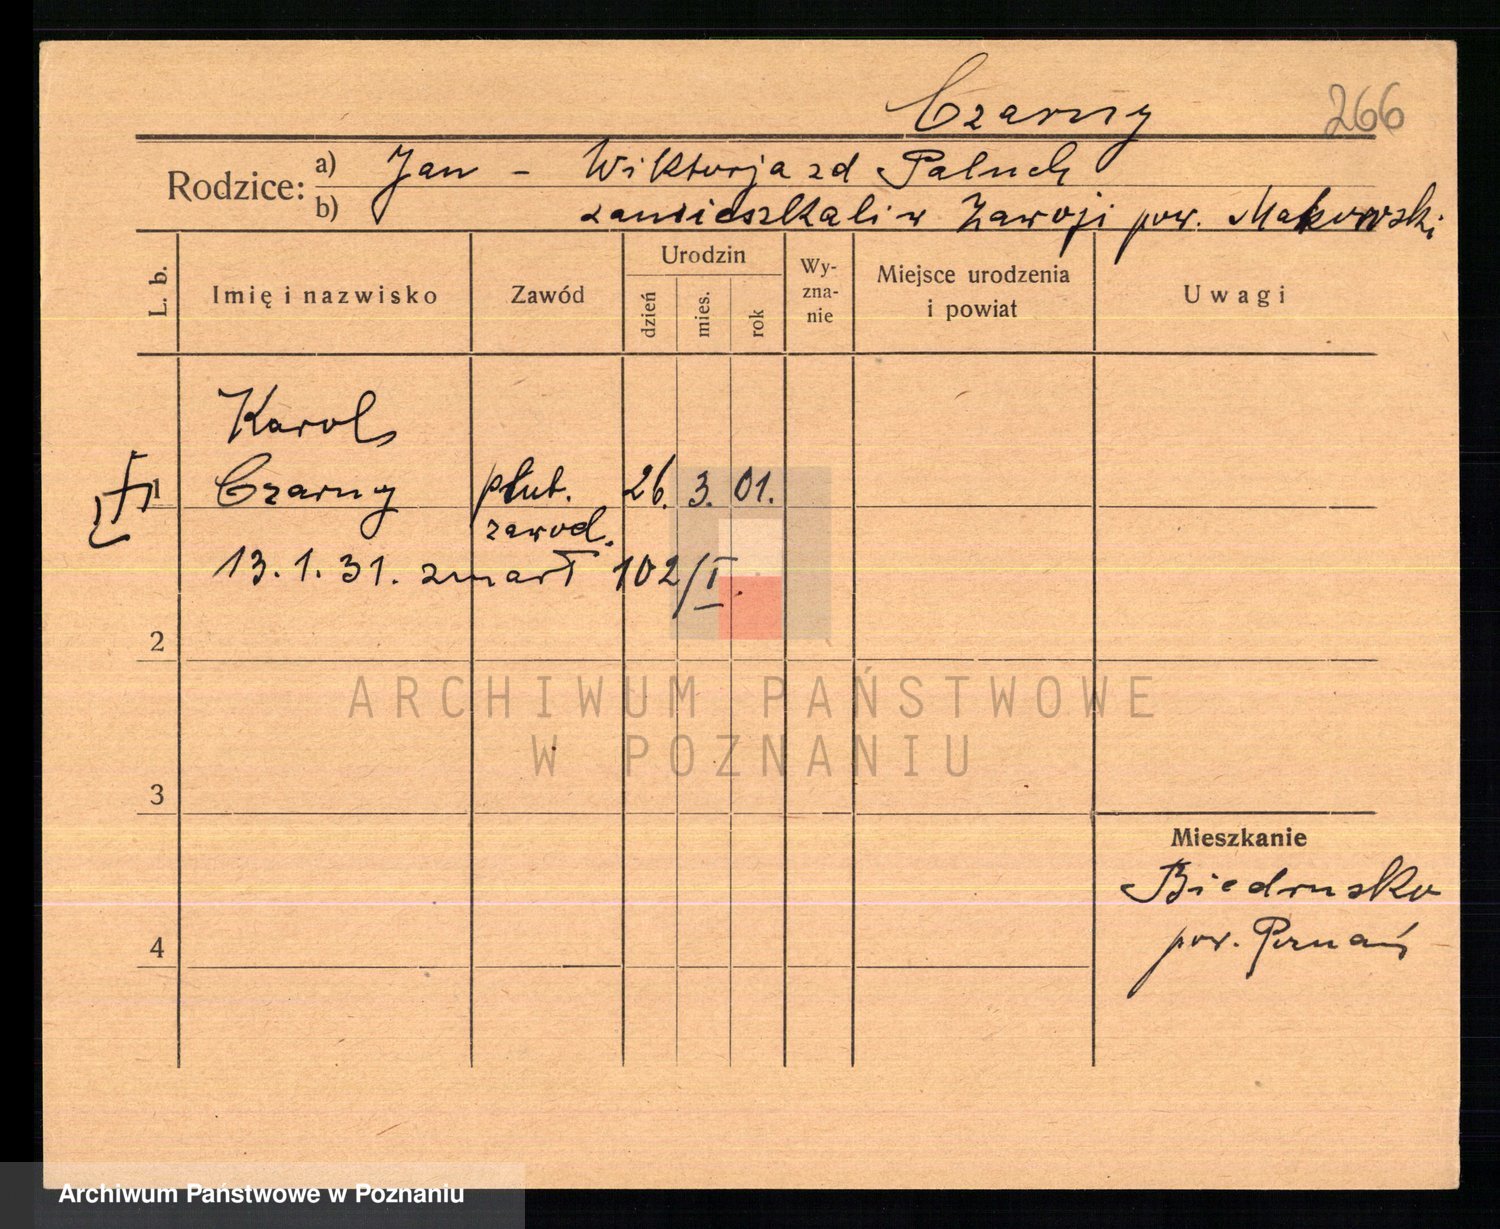 Czarny
266
Rodzice: a) Jan - Wiktorja zd Paluch
b) zamieszkali w Zawoji pow. Makowski
L. b.
Imię i nazwisko
Zawód
Urodzin
dzień
mies.
rok
Wy-
zna-
nie
Miejsce urodzenia
i powiat
Uwagi
Karol
1 Czarny plut. 26. 3. 01.
zawod.
13. 1. 31. zmarł 102/I.
2
ARCHIWUM PAŃSTWOWE
W POZNANIU
3
Mieszkanie
Biedrusko
4
pow. Poznań
Archiwum Państwowe w Poznaniu